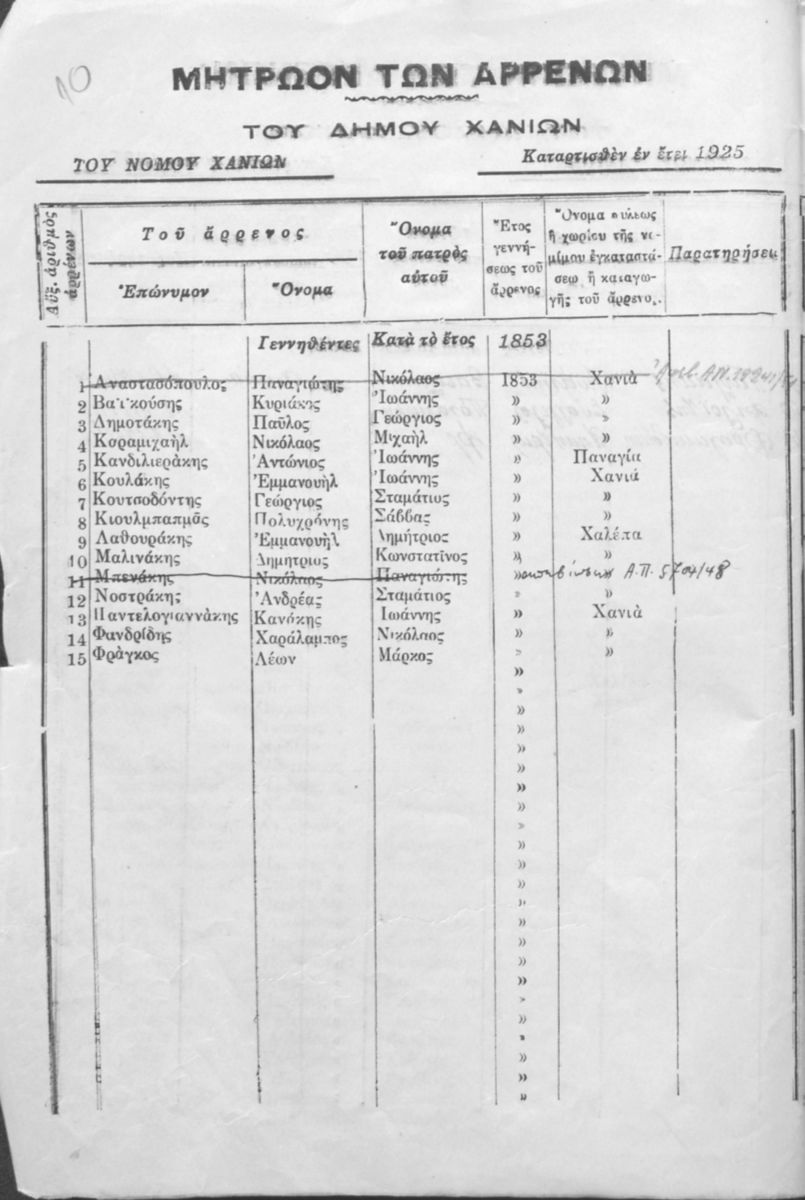 10
ΜΗΤΡΩΟΝ ΤΩΝ ΑΡΡΕΝΩΝ
ΤΟΥ ΔΗΜΟΥ ΧΑΝΙΩΝ
ΤΟΥ ΝΟΜΟΥ ΧΑΝΙΩΝ Καταρτισθὲν ἐν ἔτει 1925
Αὔξ. ἀριθμὸς ἀρρένων
Τοῦ ἄρρενος
Ἐπώνυμον Ὄνομα
Ὄνομα
τοῦ πατρὸς
αὐτοῦ
Ἔτος
γεννή-
σεως τοῦ
ἄρρενος
Ὄνομα πόλεως
ἢ χωρίου τῆς νο-
μίμου ἐγκαταστά-
σεω ἢ καταγω-
γῆς τοῦ ἄρρενο.
Παρατηρήσεις
Γεννηθέντες Κατὰ τὸ ἔτος 1853
1 Ἀναστασόπουλος Παναγιώτης Νικόλαος 1853 Χανιὰ
2 Βαϊκούσης Κυριάκης Ἰωάννης » »
3 Δημοτάκης Παῦλος Γεώργιος » »
4 Κοραμιχαὴλ Νικόλαος Μιχαὴλ » »
5 Κανδιλιεράκης Ἀντώνιος Ἰωάννης » Παναγία
6 Κουλάκης Ἐμμανουὴλ Ἰωάννης » Χανιά
7 Κουτσοδόντης Γεώργιος Σταμάτιος » »
8 Κιουλμπαπμᾶς Πολυχρόνης Σάββας » »
9 Λαθουράκης Ἐμμανουὴλ Δημήτριος » Χαλέπα
10 Μαλινάκης Δημητριος Κωνσταντῖνος » »
11 Μπενάκης Νικόλαος Παναγιώτης » Α.Π. 5704/48
12 Νοστράκης Ἀνδρέας Σταμάτιος » »
13 Παντελογιαννάκης Κανάκης Ἰωάννης » Χανιὰ
14 Φανδρίδης Χαράλαμπος Νικόλαος » »
15 Φράγκος Λέων Μάρκος » »
»
»
»
»
»
»
»
»
»
»
»
»
»
»
»
»
»
»
»
»
»
»
»